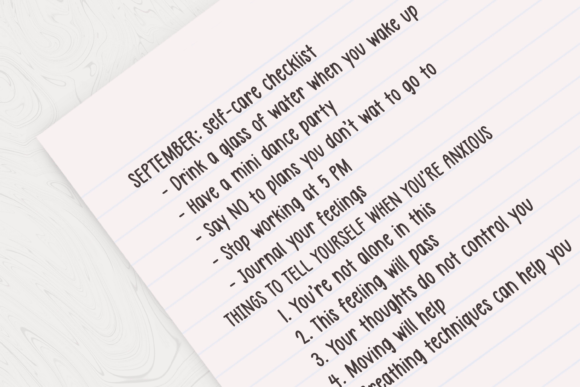 SEPTEMBER: self-care checklist
- Drink a glass of water when you wake up
- Have a mini dance party
- Say NO to plans you don't wat to go to
- Stop working at 5 PM
- Journal your feelings
THINGS TO TELL YOURSELF WHEN YOU'RE ANXIOUS
1. You're not alone in this
2. This feeling will pass
3. Your thoughts do not control you
4. Moving will help
breathing techniques can help you